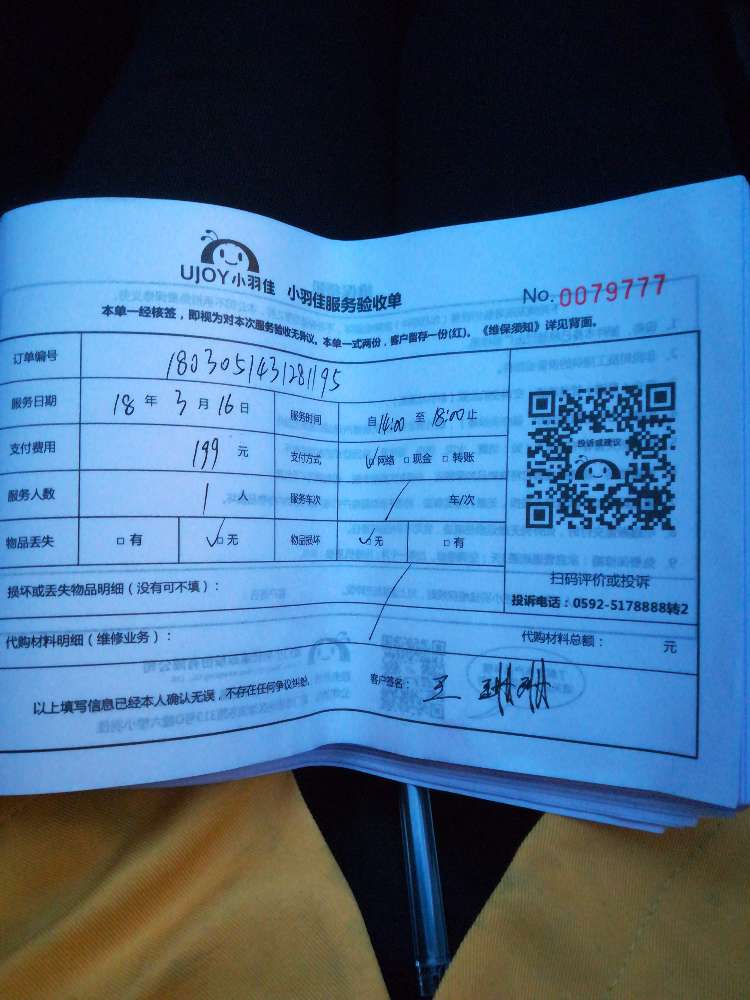 UJOY小羽佳 小羽佳服务验收单 No.0079777
本单一经核签，即视为对本次服务验收无异议。本单一式两份，客户留存一份(红)。《维保须知》详见背面。
订单编号 1803051431281195
服务日期 18 年 3 月 16 日 服务时间 自 14:00 至 18:00 止
支付费用 199 元 支付方式 ☑网络 □现金 □转账
服务人数 1 人 服务车次 / 车/次
物品丢失 □有 ☑无 物品损坏 ☑无 □有
投诉或建议
损坏或丢失物品明细（没有可不填）：
扫码评价或投诉
投诉电话：0592-5178888转2
代购材料明细（维修业务）： 代购材料总额： 元
以上填写信息已经本人确认无误，不存在任何争议纠纷。 客户签名： 王